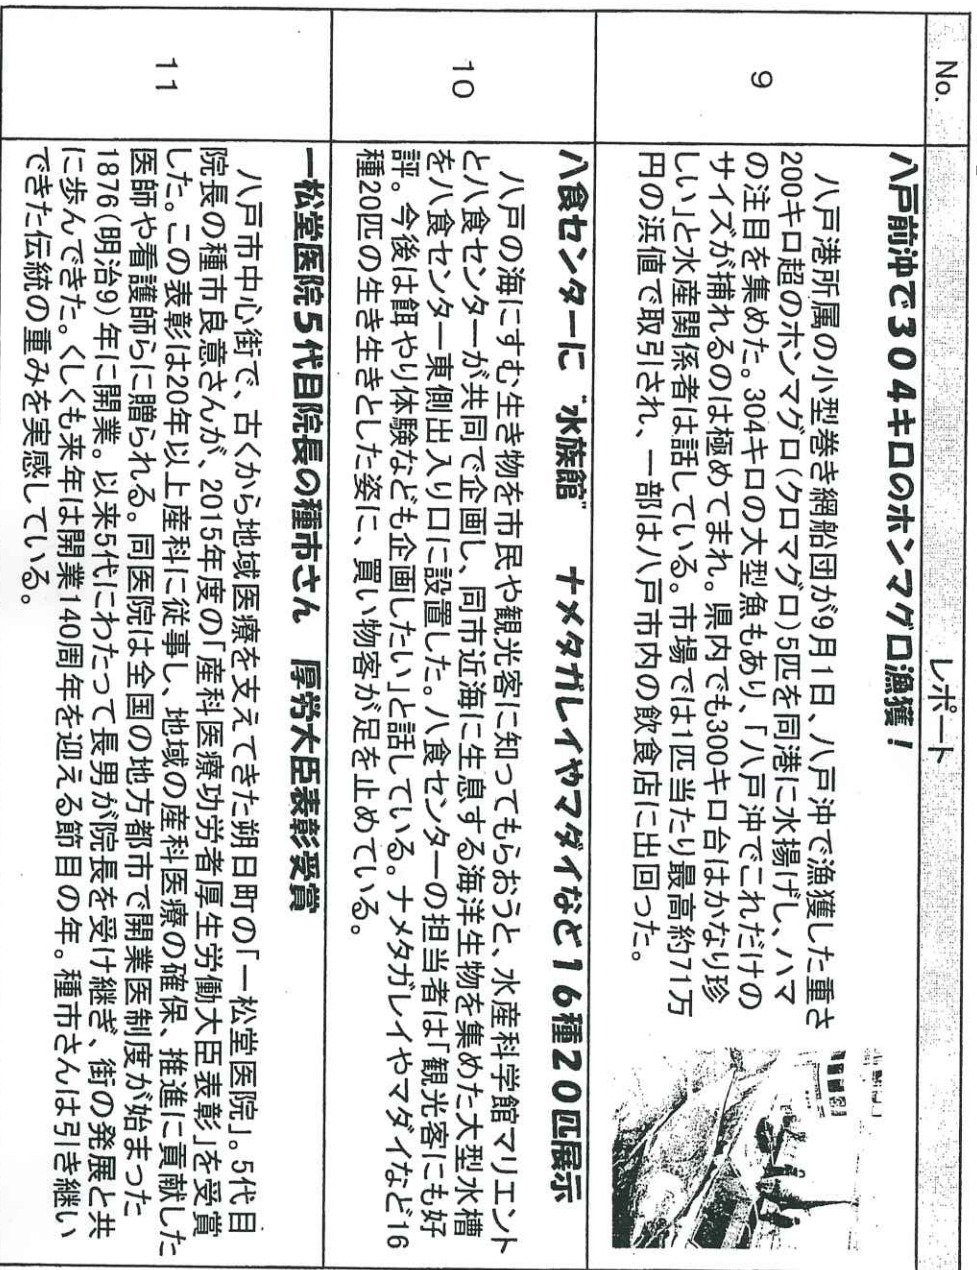 No.
レポート
9
八戸前沖で304キロのホンマグロ漁獲！
八戸港所属の小型巻き網船団が9月1日、八戸沖で漁獲した重さ
200キロ超のホンマグロ(クロマグロ)5匹を同港に水揚げし、ハマ
の注目を集めた。304キロの大型魚もあり、「八戸沖でこれだけの
サイズが捕れるのは極めてまれ。県内でも300キロ台はかなり珍
しい」と水産関係者は話している。市場では1匹当たり最高約71万
円の浜値で取引され、一部は八戸市内の飲食店に出回った。
10
八食センターに“水族館” ナメタガレイやマダイなど16種20匹展示
八戸の海にすむ生き物を市民や観光客に知ってもらおうと、水産科学館マリエント
と八食センターが共同で企画し、同市近海に生息する海洋生物を集めた大型水槽
を八食センター東側出入り口に設置した。八食センターの担当者は「観光客にも好
評。今後は餌やり体験なども企画したい」と話している。ナメタガレイやマダイなど16
種20匹の生き生きとした姿に、買い物客が足を止めている。
11
一松堂医院5代目院長の種市さん 厚労大臣表彰受賞
八戸市中心街で、古くから地域医療を支えてきた朔日町の「一松堂医院」。5代目
院長の種市良意さんが、2015年度の「産科医療功労者厚生労働大臣表彰」を受賞
した。この表彰は20年以上産科に従事し、地域の産科医療の確保、推進に貢献した
医師や看護師らに贈られる。同医院は全国の地方都市で開業医制度が始まった
1876(明治9)年に開業。以来5代にわたって長男が院長を受け継ぎ、街の発展と共
に歩んできた。くしくも来年は開業140周年を迎える節目の年。種市さんは引き継い
できた伝統の重みを実感している。